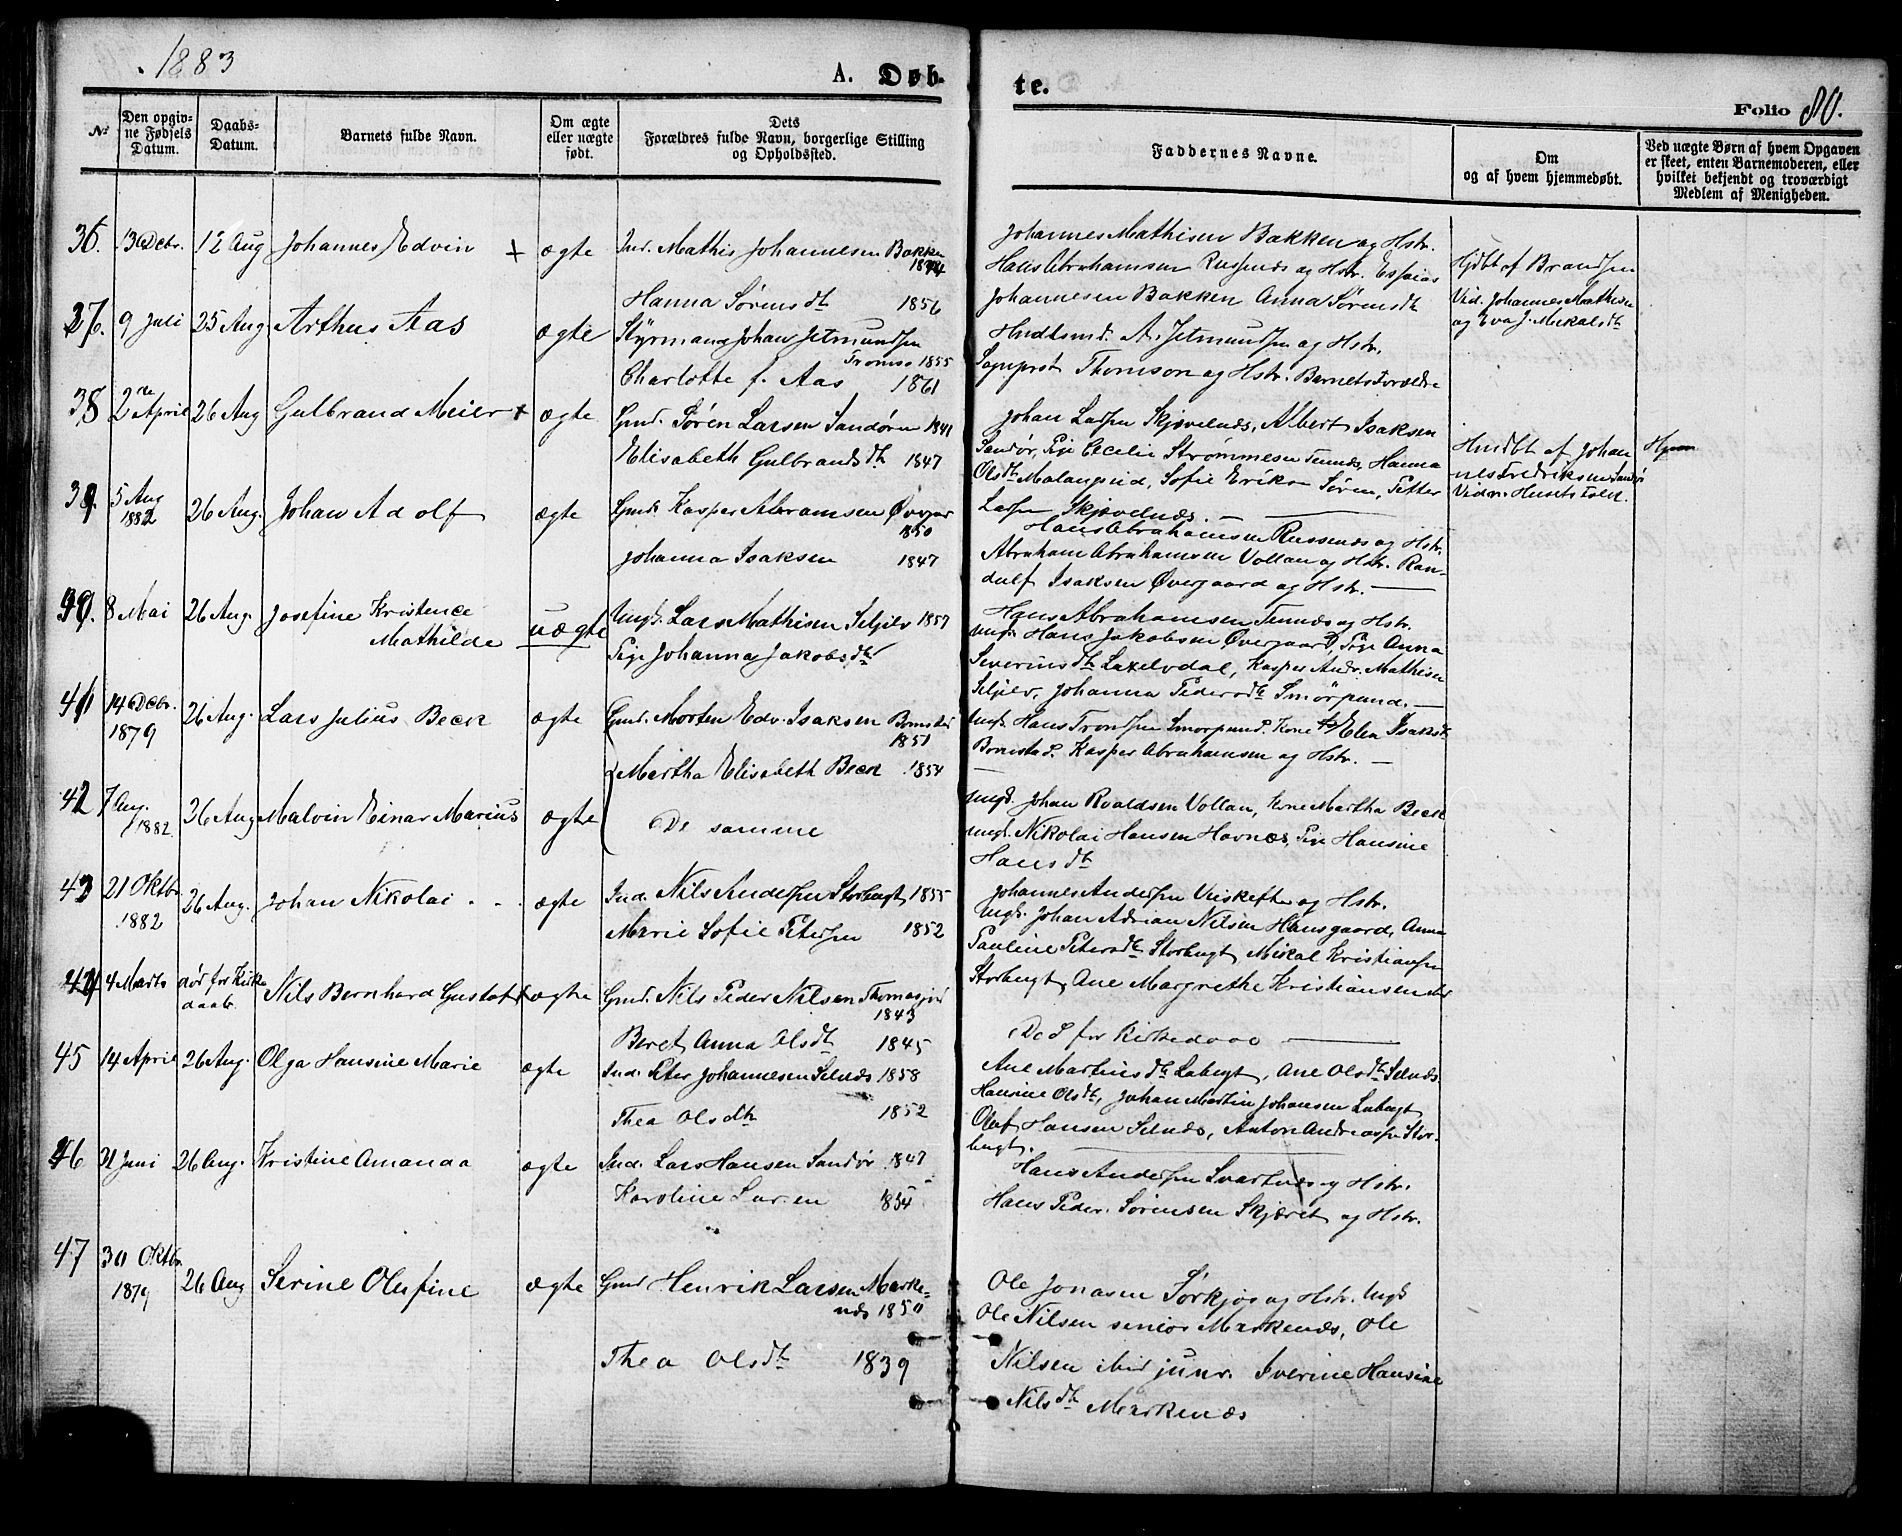 1883
A. Døb-
te.
Folio 80.
№
Den opgiv-
ne Fødsels
Datum.
Daabs-
Datum.
Barnets fulde Navn.
Om ægte
eller uægte
født.
Dets
Forældres fulde Navn, borgerlige Stilling
og Opholdssted.
Faddernes Navne.
Om
og af hvem hjemmedøbt.
Ved uægte Børn af hvem Opgaven
er skeet, enten Barnemoderen, eller
hvilket bekjendt og troværdigt
Medlem af Menigheden.
36. 3 Decbr. 12 Aug Johannes Edvin + ægte Ind. Mathis Johannesen Bakken
Hanna Sørensdt 1856
Johannes Mathisen Bakken og Hstr.
Hans Abrahamsen Russenæs og Hstr. Essaias
Johannesen Bakken Anna Sørensdt
Hjdbt af Brandsen
Vid. Johannes Mathisen
og Eva J. Mikalsdt
37. 9 Juli 25 Aug Arthur Aas ægte Styrmand Johan Jetmundsen
Tromsø 1855
Charlotte f. Aas 1861
A. Jetmundsen og Hstr.
Sognprst Thomson og Hstr. Barnets Forældre
38 2den April 26 Aug Gulbrand Meier + ægte Gmd. Søren Larsen Sandøren 1841
Elisabeth Gulbrandsdt 1847
Johan Larsen Skjævelnæs, Albert Isaksen
Sandør, Pige Cecelie Strømmesen Tennæs, Hanna
Olsdt Malangseid, Sofie Eriks Søren, Petter
Larsen Skjævelnæs.
Hmdbt af Johan
nes Fredriksen Sandør
Vidn. Husets Folk.
39. 5 Aug
1882 26 Aug. Johan Adolf ægte Gmd. Kasper Abramsen Øvergrd
1850
Johanna Isaksen 1847
Hans Abrahamsen Russenæs og Hstr.
Abraham Abrahamsen Vollan og Hstr. Ran-
dulf Isaksen Øvergaard og Hstr.
40. 8 Mai 26 Aug. Josefine Kristence
Mathilde uægte Ungk. Lars Mathisen Seljelv 1857
Pige Johanna Jakobsdt
Hans Abrahamsen Tennæs og Hstr.
Ungk. Hans Jakobsen Øvergaard, Pige Anna
Severinsdt Laxelvdal, Kasper Andr. Mathisen
Seljelv, Johanna Pedersdt Smørsund.
41 14 Decbr.
1879 26 Aug. Lars Julius Beck ægte Gmd. Morten Edv. Isaksen Bomstad
1851
Martha Elisabeth Beck 1854
Ungk. Hans Trondsen Smørsund. Kone Elen Isaksdt
Bomstad. Kasper Abrahamsen og Hstr.
42 7 Aug.
1882. 26 Aug Malvin Einar Marius ægte De samme
Ungk. Johan Roaldsen Vollan, Kone Martha Beck
Ungk. Nikolai Hansen Havnæs, Pige Hansine
Hansdt
43 21 Oktbr
1882 26 Aug. Johan Nikolai ægte Ind. Nils Andersen Storbugt 1855
Marie Sofie Petersen 1852
Johannes Andersen og Hstr.
Ungk. Johan Adrian Nilsen Hansgaard, Anna
Pauline Petersdt Storbugt, Mikal Kristiansen
Storbugt, Ane Margrethe Kristiansen
44 4 Marts død før Kirke
daab. Nils Bernhard Gustof + ægte Gmd. Nils Peder Nilsen Thomasjord
1843
Beret Anna Olsdt 1845
Død før Kirkedaab
45 14 April 26 Aug. Olga Hansine Marie ægte Ind. Peter Johannesen Selnæs 1858
Thea Olsdt 1852
Ane Martinsdt Labugt, Ane Olsdt Selnæs
Hansine Olsdt, Johan Martin Johansen Labugt
Olaf Hansen Selnæs, Anton Andreassen Stor-
bugt.
46 21 Juni 26 Aug. Kristine Amanda ægte Ind. Lars Hansen Sandør 1847
Karoline Larsen 1854
Hans Andersen Svartnæs og Hstr.
Hans Peder Sørensen Skjæret og Hstr.
47 30 Oktbr.
1879 26 Aug Serine Olufine ægte Gmd Henrik Larsen Marke-
næs 1850
Thea Olsdt 1839
Ole Jonasen Sørkjos og Hstr. Ungk
Ole Nilsen senior Markenæs, Ole
Nilsen ibid junr. Iverine Hansine
Nilsdt Markenæs